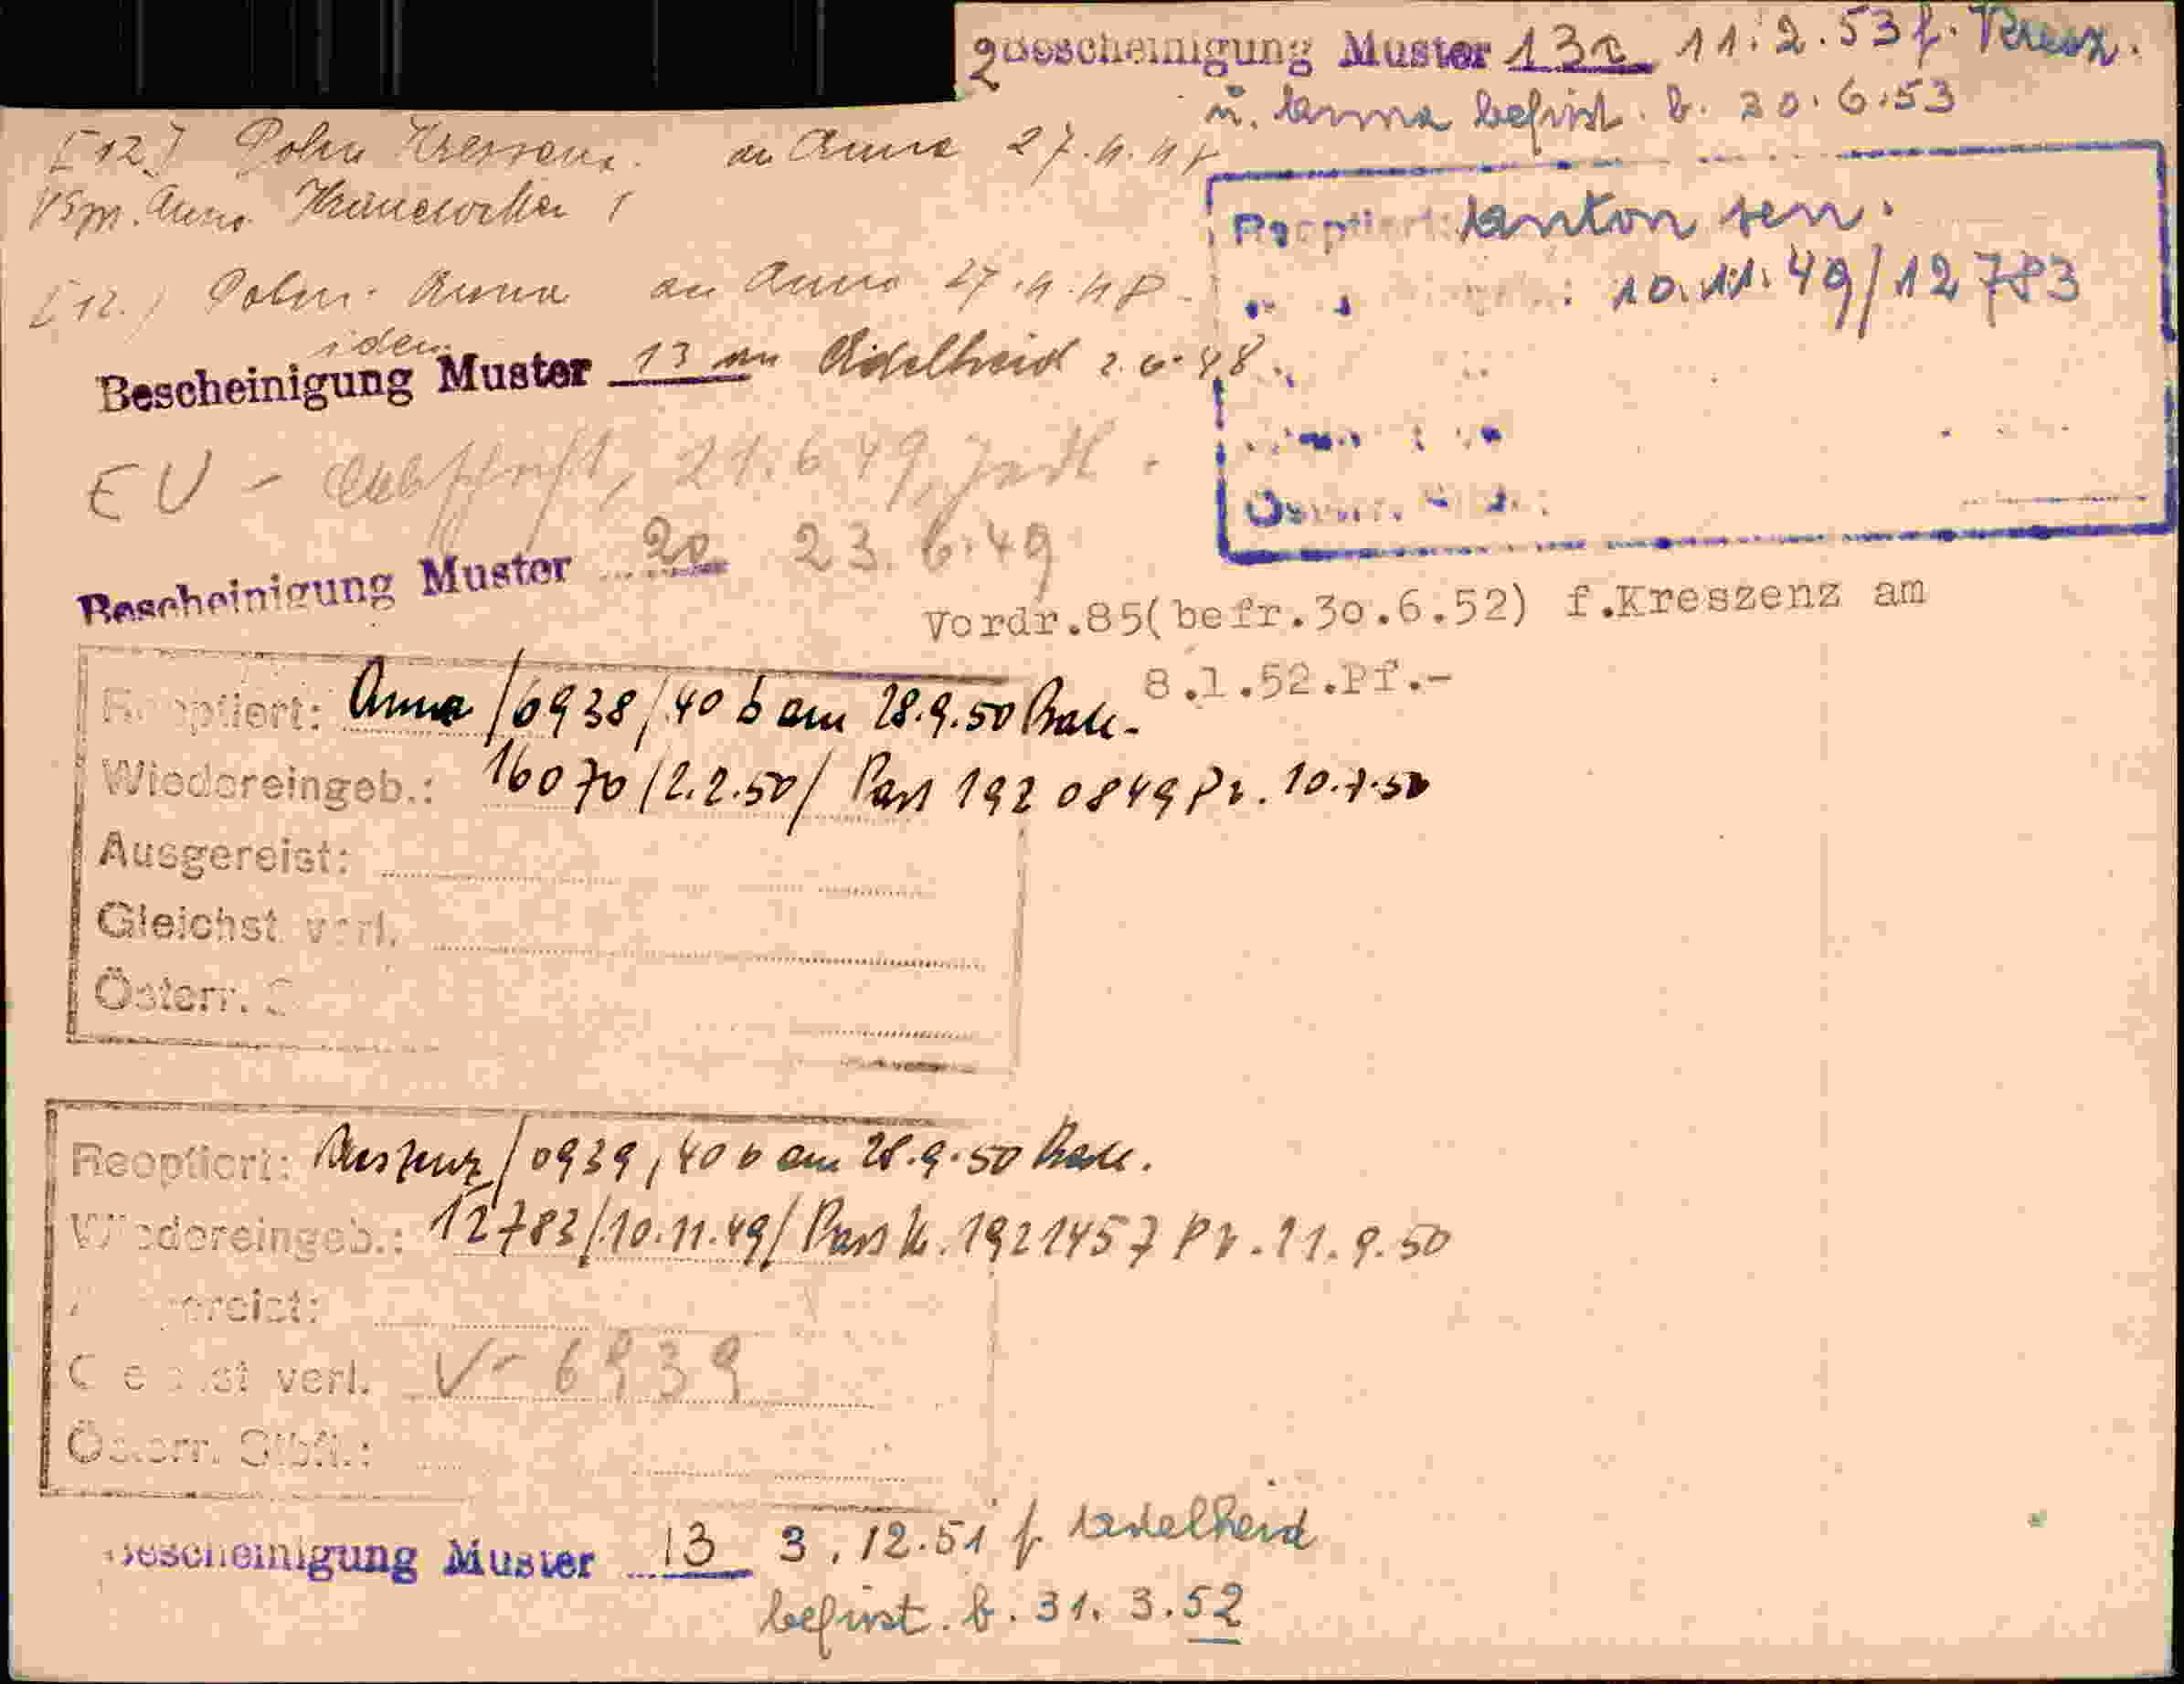 Bescheinigung Muster 13a 11.2.53 f. Kresz.
u. Anna befrist. b. 30.6.53
[12] an Anna 27.4.48
[12.] Anna an Anna 27.4.48
Bescheinigung Muster 13 an Adelheid 2.6.48
Reoptiert: Anton sen.
: 10.11.49/12783
Österr.
EU - 21.6.49,
Bescheinigung Muster 20 23.6.49
Vordr.85(befr.30.6.52) f.Kreszenz am
8.1.52.Pf.-
Reoptiert: Anna /6938/40 b am 28.9.50
Wiedereingeb.: 16070/2.2.50/ Pass 192 0849 Pr. 10.7.50
Ausgereist:
Gleichst verl.
Österr.
Reoptiert: Kreszenz/0939/40 b am 28.9.50
Wiedereingeb.: 12783/10.11.49/ Pass 1921457 Pr. 11.9.50
Ausgereist:
Gleichst verl. V- 6939
Österr. Stbft.:
Bescheinigung Muster 13 3.12.51 f Adelheid
befrist. b. 31.3.52